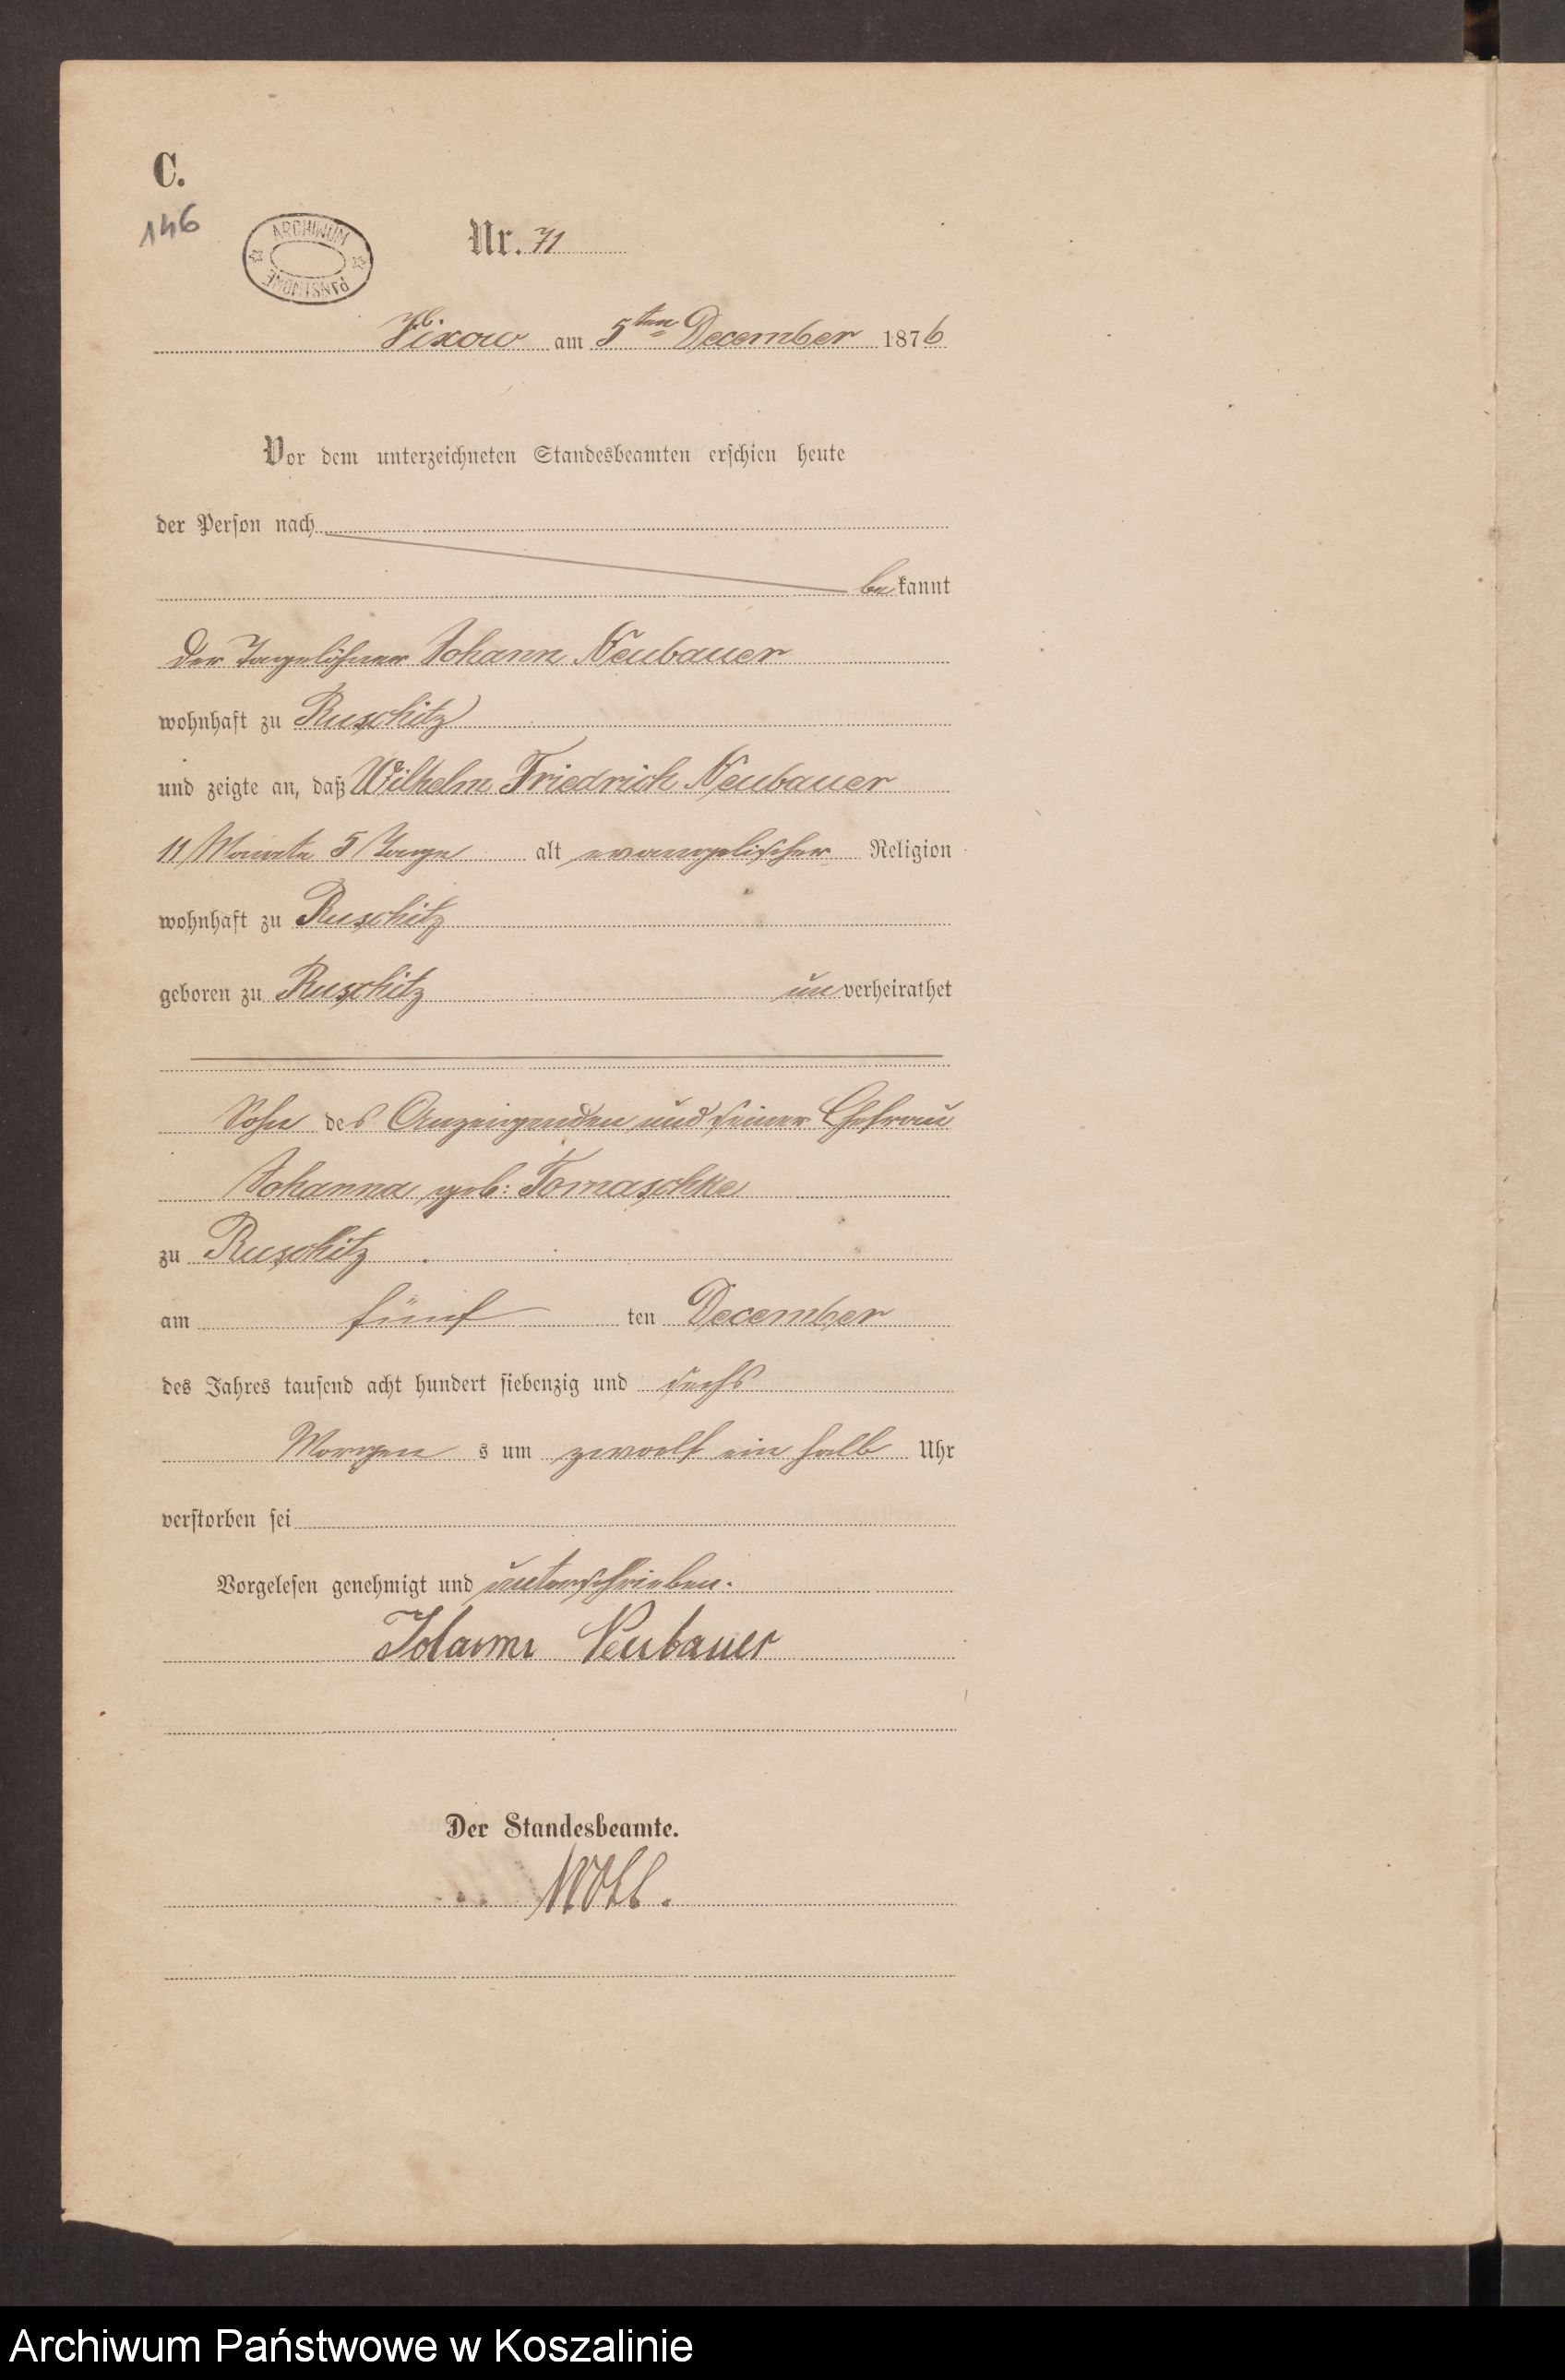 C.
146
ARCHIWUM PAŃSTWOWE
Nr. 71
Vixow am 5ten December 1876
Vor dem unterzeichneten Standesbeamten erschien heute
der Person nach
bekannt
der Tagelöhner Johann Neubauer
wohnhaft zu Ruschitz
und zeigte an, daß Wilhelm Friedrich Neubauer
11 Monate 5 Tage alt evangelischer Religion
wohnhaft zu Ruschitz
geboren zu Ruschitz unverheirathet
Sohn des Anzeigenden und seiner Ehefrau
Johanna geb: Tomaschke
zu Ruschitz
am fünf ten December
des Jahres tausend acht hundert siebenzig und sechs
Morgen s um zwoelf ein halb Uhr
verstorben sei
Vorgelesen genehmigt und unterschrieben.
Johann Neubauer
Der Standesbeamte.
Archiwum Państwowe w Koszalinie